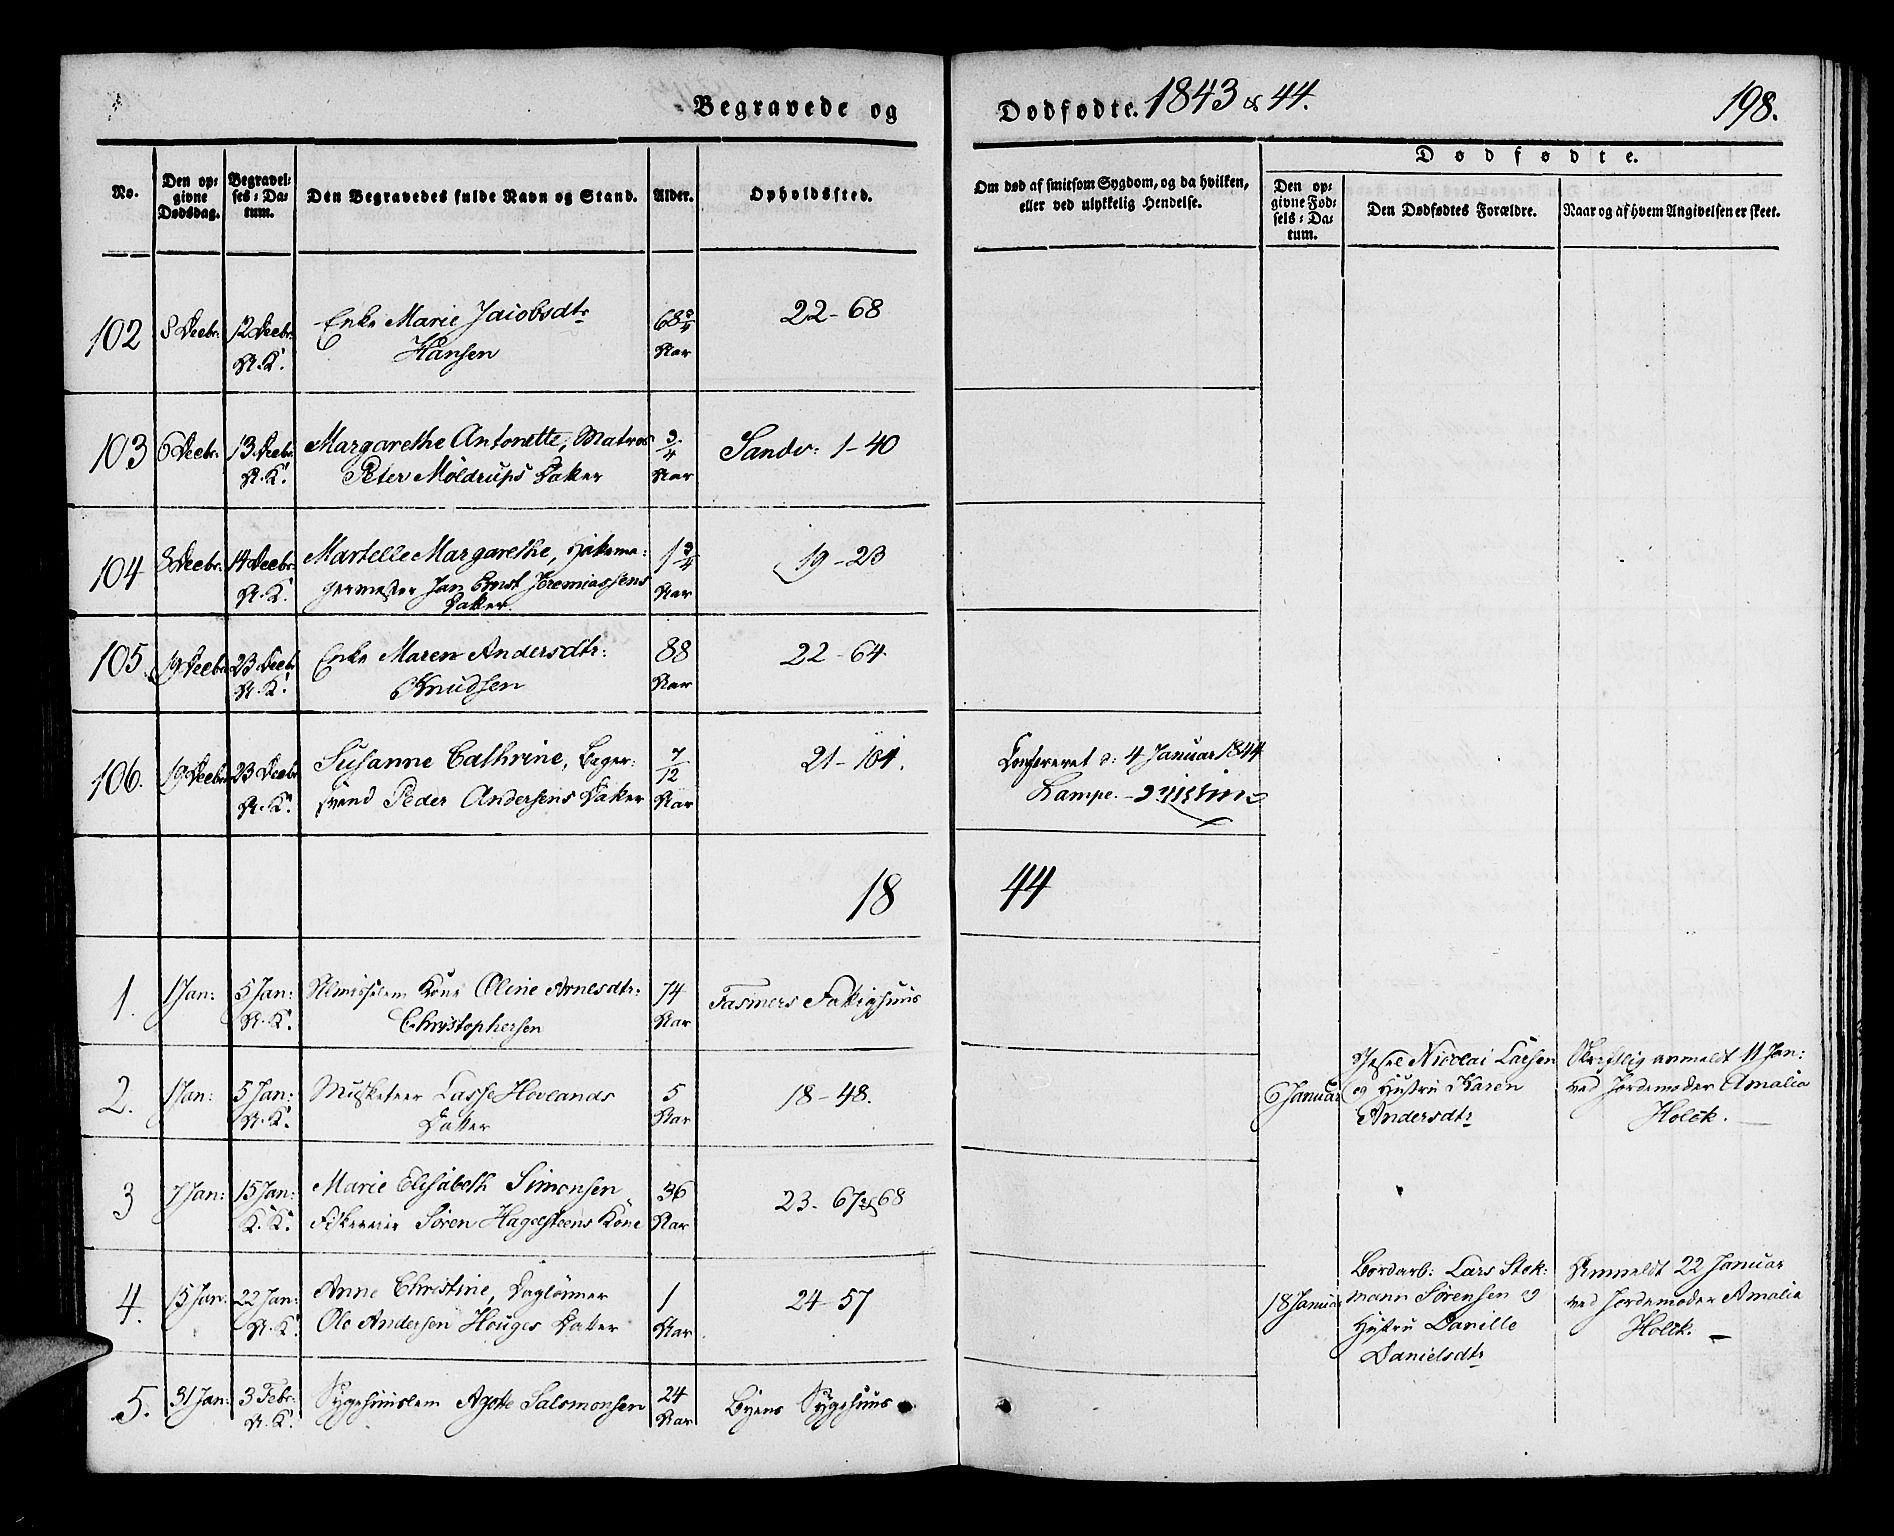 Begravede og
Dødfødte. 1843 & 44.
198.
No.
Den op-
givne
Dødsdag.
Begravel-
ses-Da-
tum.
Den Begravedes fulde Navn og Stand.
Alder.
Opholdssted.
Om død af smitsom Sygdom, og da hvilken,
eller ved ulykkelig Hendelse.
Dødfødte.
Den op-
givne Fød-
sels-Da-
tum.
Den Dødfødtes Forældre.
Naar og af hvem Angivelsen er skeet.
102 8 Decbr. 12 Decbr. Enke Marie Jacobsdtr 68 3/4 22-68
N.K. Hansen Aar
103 6 Decbr. 13 Decbr. Margarethe Antonette, Matros 3/4 Sandv: 1-40
N.K. Peter Möldrups Datter Aar
104 8 Decbr. 14 Decbr. Martelle Margarethe, 1 3/4 19-23
N.K. Jan Ernst Jeremiassens Aar
Datter.
105. 19 Decbr. 23 Decbr. Enke Maren Andersdtr: 88 22-64.
N.K. Knudsen Aar
106. 19 Decbr. 23 Decbr. Susanne Cathrine, Bager- 7/12 21-101. Confereret d: 4 Januar 1844
N.K. svend Peder Andersens Datter Aar Lampe.
18 44
1. 1 Jan: 5 Jan: Almisselem Kone Oline Arnesdtr: 74 Fasmers Fattighuus
N.K. Christophersen Aar
2. 1 Jan: 5 Jan: Musketeer Lasse Hovlands 5 18-48.
N.K. Datter Aar
6 Januar
Nicolai Larsen
og Hustru Karen
Andersdtr
Skriftlig anmeldt 11 Jan:
ved Jordemoder Amalia
Holck.
3 7 Jan: 15 Jan: Marie Elisabeth Simonsen 36 23-67 & 68
K.K. Søren Hagelsteens Kone Aar
4. 15 Jan: 22 Jan: Anne Christine, Daglønner 1 24-57
N.K. Ole Andersen Houges Datter Aar
18 Januar
Bordarb: Lars Stek-
mann Sørensen og
Hustru Danille
Danielsdtr
Anmeldt 22 Januar
ved Jordemoder Amalia
Holck.
5. 31 Jan: 3 Febr: Sygehuuslem Agete Salomonsen 24 Byens Sygehuus
N.K. Aar